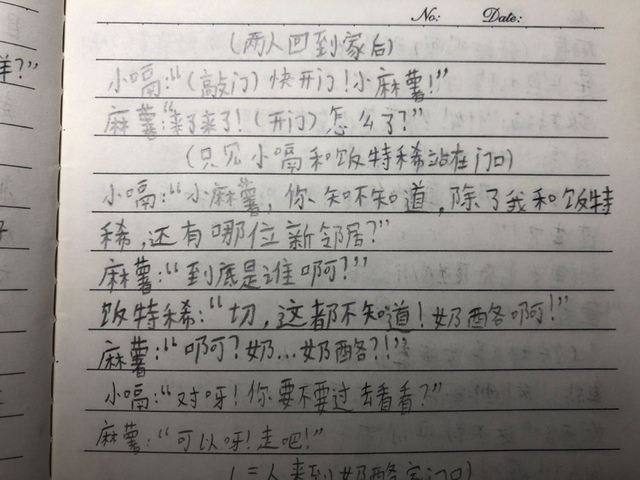 样？”
No: Date:
（两人回到家后）
小嗝：“（敲门）快开门！小麻薯！”
麻薯：“来了来了！（开门）怎么了？”
（只见小嗝和饭特稀站在门口）
小嗝：“小麻薯，你知不知道，除了我和饭特
稀，还有哪位新邻居？”
麻薯：“到底是谁啊？”
饭特稀：“切，这都不知道！奶酪啊！”
麻薯：“啊？奶…奶酪？！”
小嗝：“对呀！你要不要过去看看？”
麻薯：“可以呀！走吧！”
（三人来到奶酪家门口）